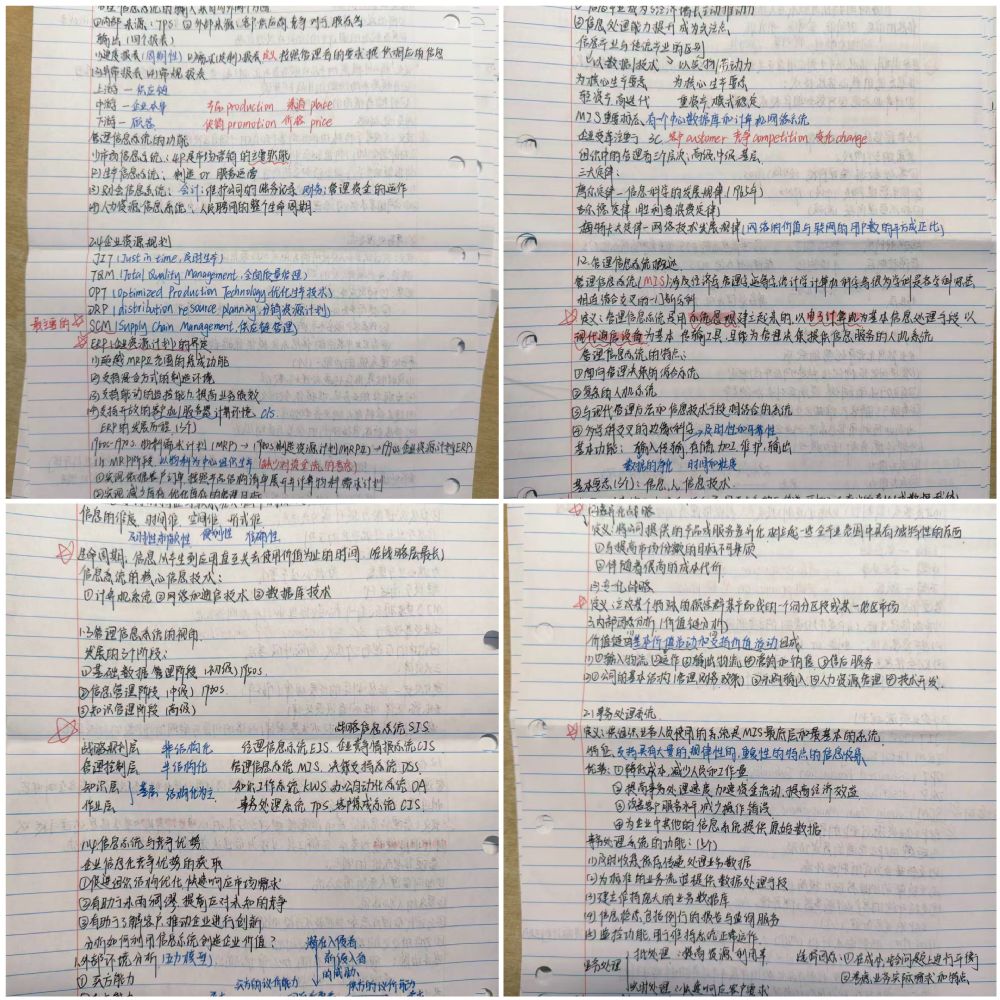 管理信息系统的输入来自内外两个方面
①内部来源：TPS ②外部来源：客户 供应商 竞争对手 股东等
输出（四个报表）
(1)进度报表（周期性）(2)需求（定制）报表 定义 按照管理者的要求提供相应的信息
(3)异常报表 (4)常规报表
上游 — 供应链
中游 — 企业本身 产品 production 渠道 place
下游 — 顾客 促销 promotion 价格 price
管理信息系统的功能
(1)市场信息系统：4P是市场营销的主要职能
(2)生产信息系统：制造 or 服务运营
(3)财会信息系统：会计：维护公司的账务记录 财务：管理资金的运作
(4)人力资源信息系统：人员聘用的整个生命周期
2.4 企业资源规划
JIT（Just in time，及时生产）
TQM（Total Quality Management，全面质量管理）
OPT（Optimized Production Technology 优化生产技术）
DRP（distribution resource planning，分销资源计划）
最主要的 SCM（Supply Chain Management，供应链管理）
ERP（企业资源计划）的界定
(1)超越MRP2范围的集成功能
(2)支持混合方式的制造环境
(3)支持能动的监控能力，提高业务绩效
(4)支持开放的客户机/服务器计算环境 C/S
ERP的发展历程（3个）
1960s-1970s 物料需求计划（MRP）→ 1980s制造资源计划（MRP2）→ 1990s企业资源计划ERP
(1) MRP阶段 以物料为中心组织生产（缺少对资金流的考虑）
①实现依据客户订单 按照产品结构清单展开并计算物料需求计划
②实现减少库存 优化库存的管理目标
②信息处理能力提升成为关注点
信息产业与传统产业的区别
以数据、技术 以实物 劳动力
为核心生产要素 为核心生产要素
轻资产 高迭代 重资产 模式稳定
MIS重要标志：有个中心数据库和计算机网络系统
企业变革注重于 3C 客户 customer 竞争 competition 变化 change
组织中的管理有三个层次：高级 中级 基层
三大定律：
摩尔定律—信息科学的发展规律（1965年）
达维多定律（胜利者浪费定律）
梅特卡夫定律—网络技术发展规律（网络的价值与联网的用户数的平方成正比）
1.2 管理信息系统概述
管理信息系统（MIS）涉及经济学 管理学 运筹学 统计学 计算机科学等很多学科 是各学科紧密
相连综合交叉的一门新学科
定义：管理信息系统是用系统思想建立起来的，以电子计算机为基本信息处理手段，以
现代通信设备为基本传输工具，且能为管理决策提供信息服务的人机系统
管理信息系统的特点：
①面向管理决策的综合系统
②复杂的人机系统
③与现代管理方法和信息技术手段相结合的系统
④多学科交叉的边缘科学 及时性和可靠性
基本功能：输入 传输 存储 加工 维护 输出
数据的净化 时间和进度
基本要素（3个）：信息 人 信息技术
信息的维度：时间维 空间维 形式维
及时性和新颖性 便利性 准确性
生命周期：信息从产生到应用直至失去使用价值为止的时间（战略层最长）
信息系统的核心信息技术：
①计算机系统 ②网络和通信技术 ③数据库技术
1.3 管理信息系统的视角
发展的3个阶段：
①基础数据管理阶段（初级）1960s
②信息管理阶段（中级）1980s
③知识管理阶段（高级）
战略信息系统 SIS
战略规划层 非结构化 经理信息系统 EIS、企业竞争情报系统 CIS
管理控制层 半结构化 管理信息系统 MIS、决策支持系统 DSS
知识层 知识工作系统 KWS 办公自动化系统 OA
基层 结构化为主
作业层 事务处理系统 TPS、客户集成系统 CIS
1.4 信息系统与竞争优势
企业信息化竞争优势的获取
①促进组织结构优化 快速响应市场需求
②有助于未雨绸缪 提前应对未知的竞争
③有助于了解客户 推动企业进行创新
分析如何利用信息系统创造企业价值？ 潜在入侵者
1.外部环境分析（五力模型） 新进入者
的威胁
①买方能力 买方的议价能力 供方的议价能力
定义：将公司提供的产品或服务差异化，树立起一些全产业范围中具有独特性的东西
①与提高市场份额的目标不可兼顾
②伴随着很高的成本代价
(3)专一化战略
定义：主攻某个特殊的顾客群 某产品线的一个细分区段或某一地区市场
2.内部因素分析（价值链分析）
价值链由基本价值活动和支持价值活动组成
(1)①输入物流 ②运作 ③输出物流 ④营销和销售 ⑤售后服务
(2)①公司的基本结构（管理 财务 政策）②采购输入 ③人力资源管理 ④技术开发
2.1 事务处理系统
定义：供组织业务人员使用的系统 是MIS最底层和最基本的系统
特征：支持具有大量的规律性的，重复性的特点的信息收集
优势：①降低成本，减少人员和工作量
②提高事务处理速度 加速资金流动、提高经济效益
③改善客户服务水平 减少操作错误
④为企业中其他的信息系统提供原始数据
事务处理系统的功能：（5个）
(1)及时收集 储存 传递 处理业务数据
(2)为标准的业务流程提供数据处理手段
(3)建立维持庞大的业务数据库
(4)信息检索，包括例行的报告与查询服务
(5)监控功能，用于维持系统正常运作
业务处理 批处理：提高资源利用率 选择因素：①在成本、业务问题上进行平衡
实时处理：快速响应客户要求 ②考虑业务实际需求和特点